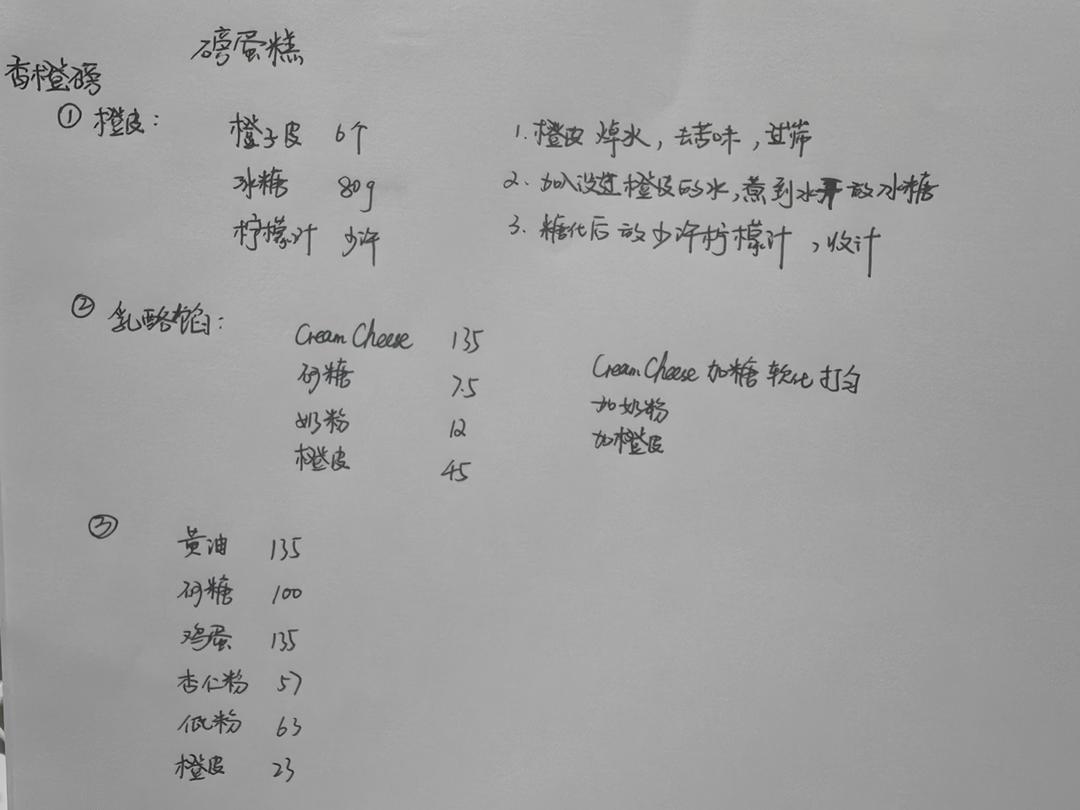 磅蛋糕
香橙磅
① 橙皮：
橙子皮 6个
冰糖 80g
柠檬汁 少许
1. 橙皮焯水，去苦味，过筛
2. 加入没过橙皮的水，煮到水开放冰糖
3. 糖化后放少许柠檬汁，收汁
② 乳酪馅：
Cream Cheese 135
砂糖 7.5
奶粉 12
橙皮 45
Cream Cheese 加糖 软化打匀
加奶粉
加橙皮
③
黄油 135
砂糖 100
鸡蛋 135
杏仁粉 57
低粉 63
橙皮 23